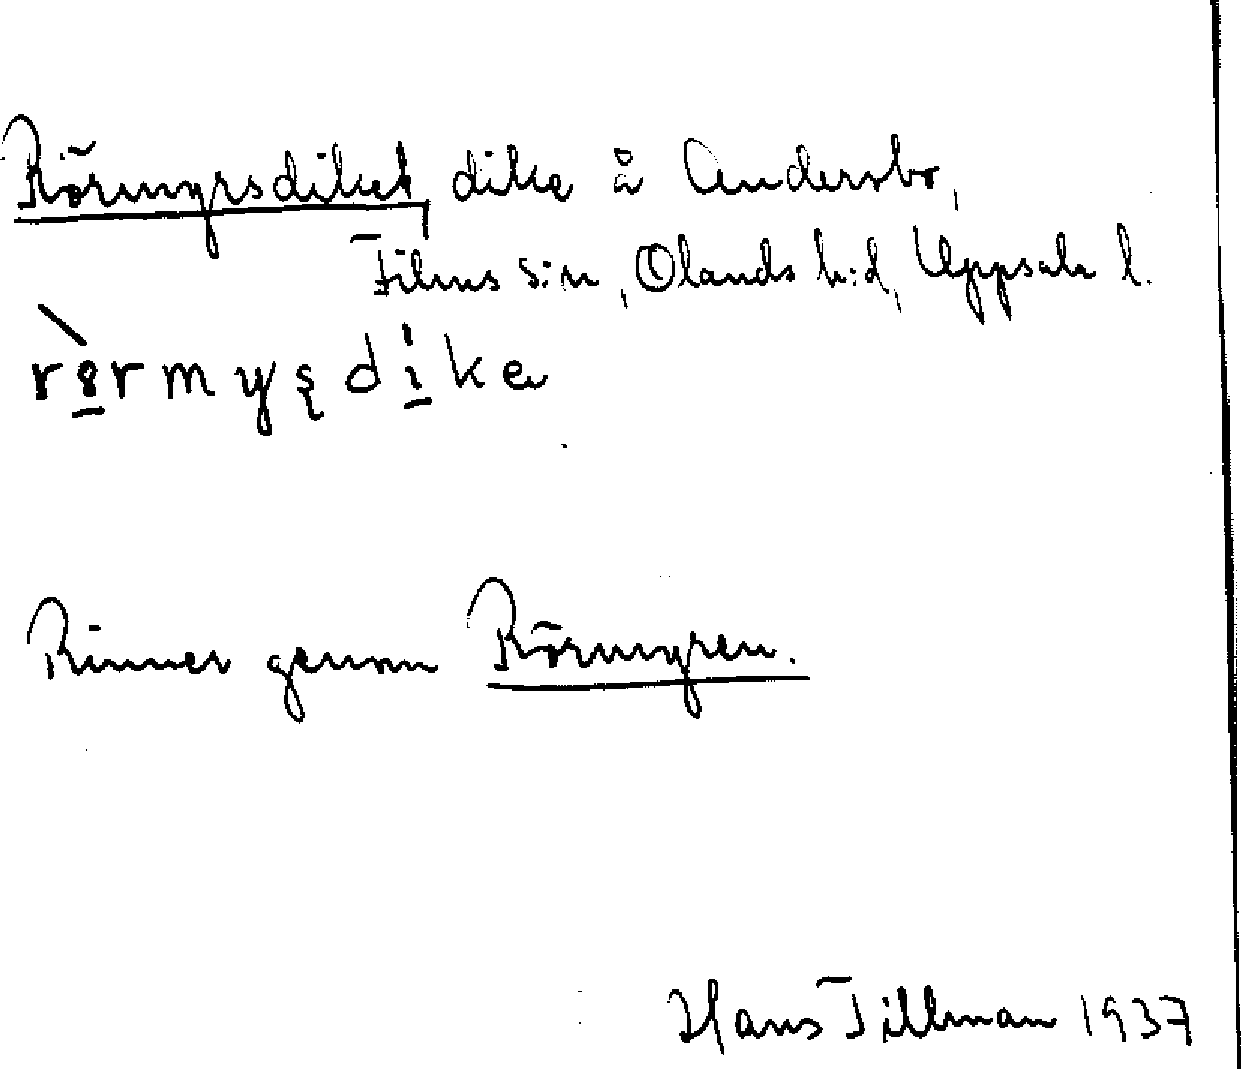 Rörmyrsdiket, dike å Andersbo,
Films s:n, Olands h:d, Uppsala l.
Rinner genom Rörmyren.
Hans Tillman 1937